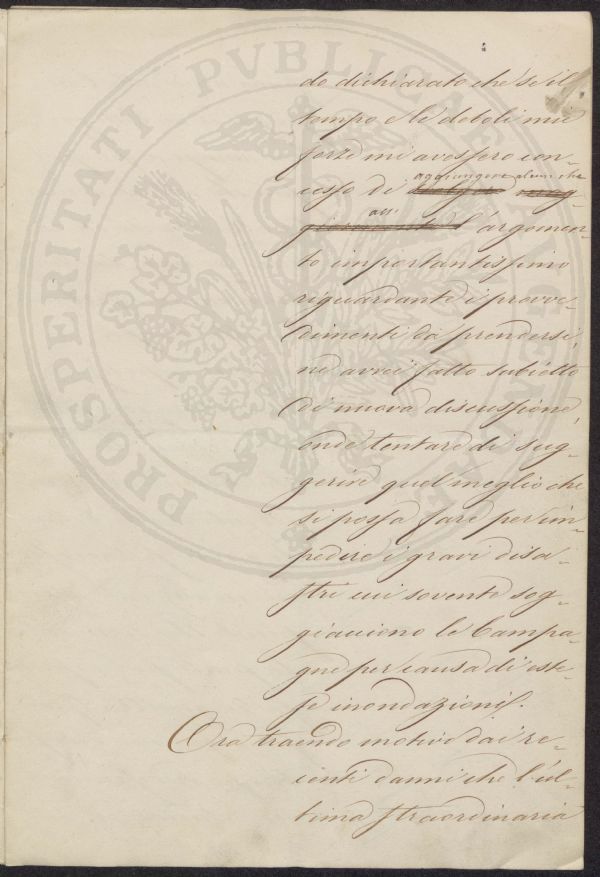 do dichiarato che se il
tempo e le deboli mie
forze mi avessero con-
cesso di aggiungere alcun che
all'argomen-
to importantissimo
riguardante i provve-
dimenti da prendersi,
ne avrei fatto subietto
di nuova discussione,
onde tentare di sug-
gerire quel meglio che
si possa fare per im-
pedire i gravi disa-
stri cui sovente sog-
giacciono le Campa-
gne per causa di este-
se inondazioni.
Ora traendo motivo dai re-
centi danni che l'ul-
tima straordinaria
PROSPERITATI PVBLICAE AVGENDAE